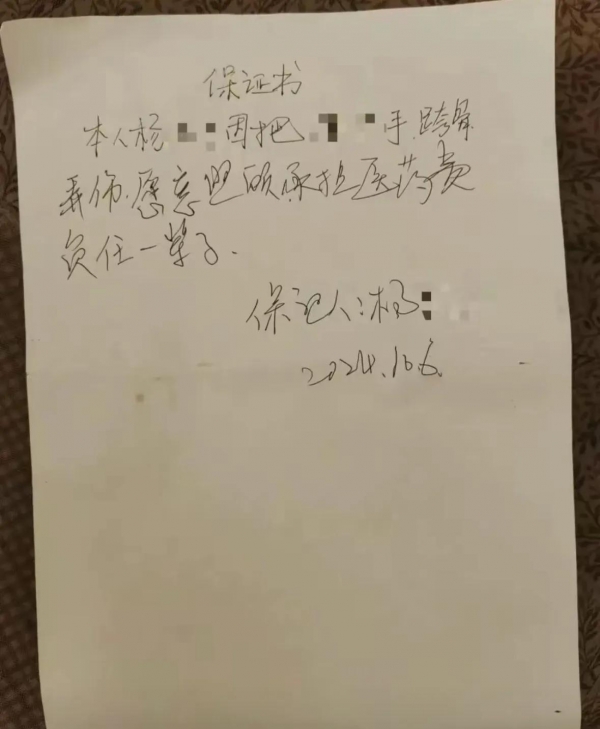 保证书
本人杨 因把 手 跨骨
弄伤.愿意 承担医药费
负任一辈子.
保证人:杨
2024.10.6.